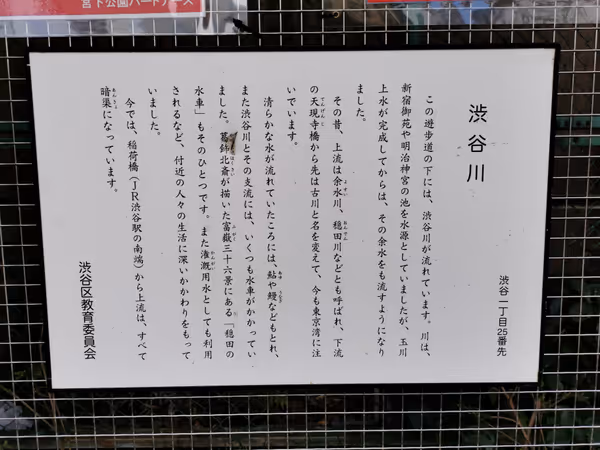 宮下公園パートナーズ
渋谷川
渋谷一丁目25番先
この遊歩道の下には、渋谷川が流れています。川は、
新宿御苑や明治神宮の池を水源としていましたが、玉川
上水が完成してからは、その余水をも流すようになり
ました。
その昔、上流は余水川、穏田川などとも呼ばれ、下流
の天現寺橋から先は古川と名を変えて、今も東京湾に注
いでいます。
清らかな水が流れていたころには、鮎や鰻などもとれ、
また渋谷川とその支流には、いくつも水車がかかってい
ました。葛飾北斎が描いた富嶽三十六景にある「穏田の
水車」もそのひとつです。また灌漑用水としても利用
されるなど、付近の人々の生活に深いかかわりをもって
いました。
今では、稲荷橋(JR渋谷駅の南端)から上流は、すべて
暗渠になっています。
渋谷区教育委員会